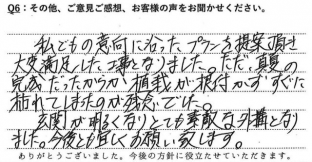 Q6：その他、ご意見ご感想、お客様の声をお聞かせください。
私どもの意向に沿ったプランを提案頂き
大変満足した工事となりました。ただ、真夏の
完成だったからか植栽が根付かずすぐに
枯れてしまったのが残念でした。
玄関が明るくなりとても素敵な外構となり
ました。今後とも宜しくお願い致します。
ありがとうございました。今後の方針に役立たせていただきます。